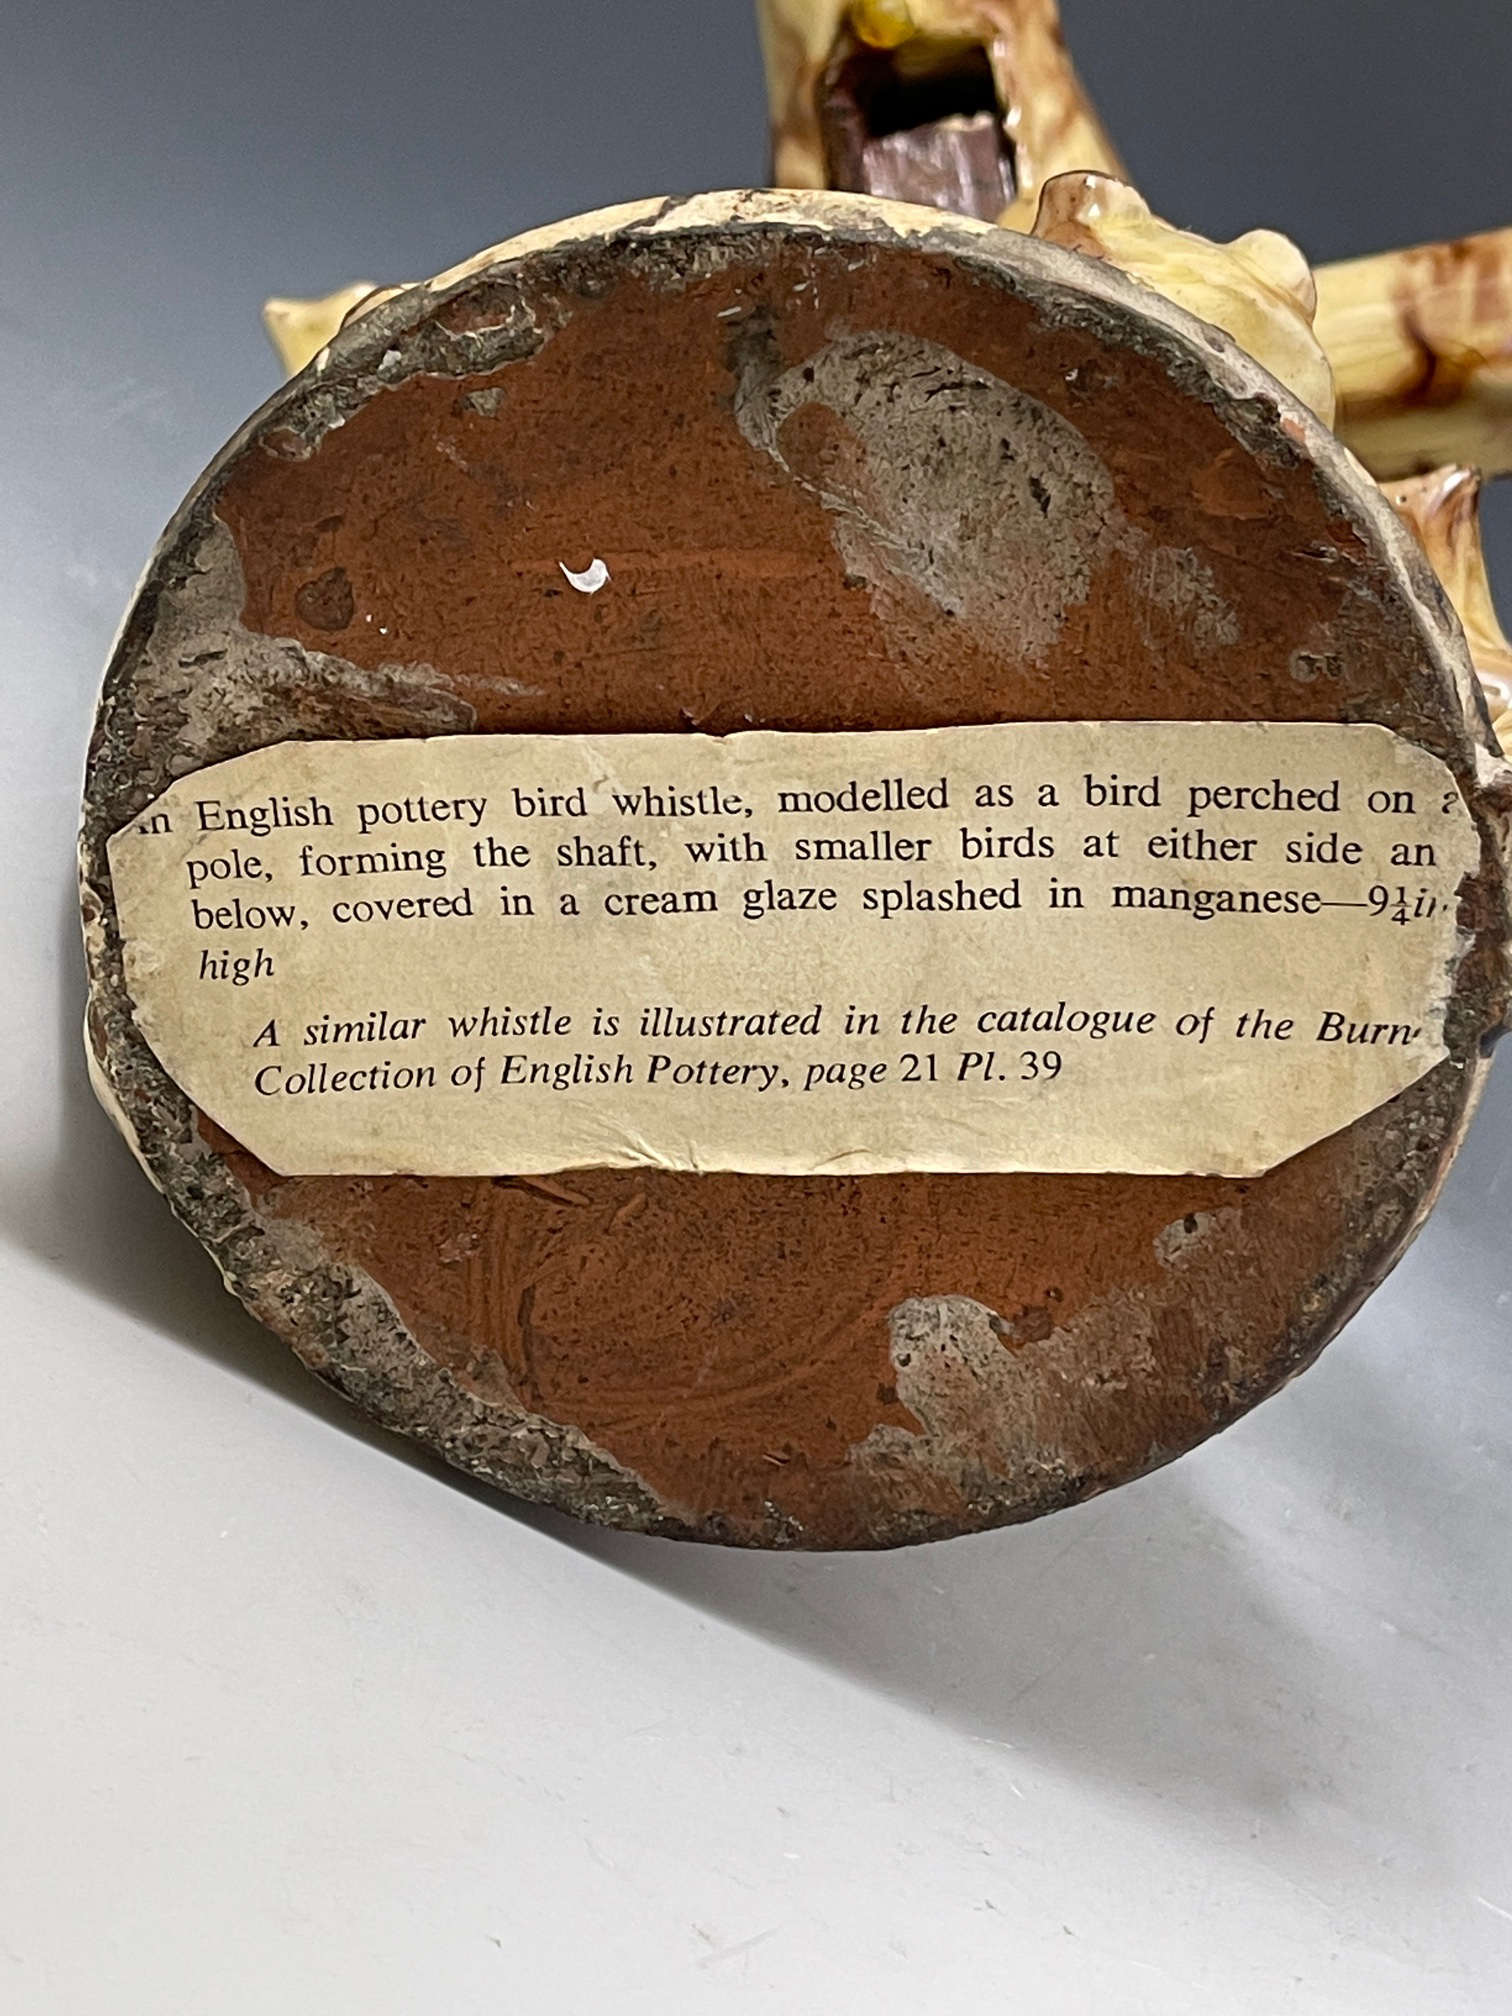 English pottery bird whistle, modelled as a bird perched on
pole, forming the shaft, with smaller birds at either side an
below, covered in a cream glaze splashed in manganese—9¼in
high
A similar whistle is illustrated in the catalogue of the Burn
Collection of English Pottery, page 21 Pl. 39